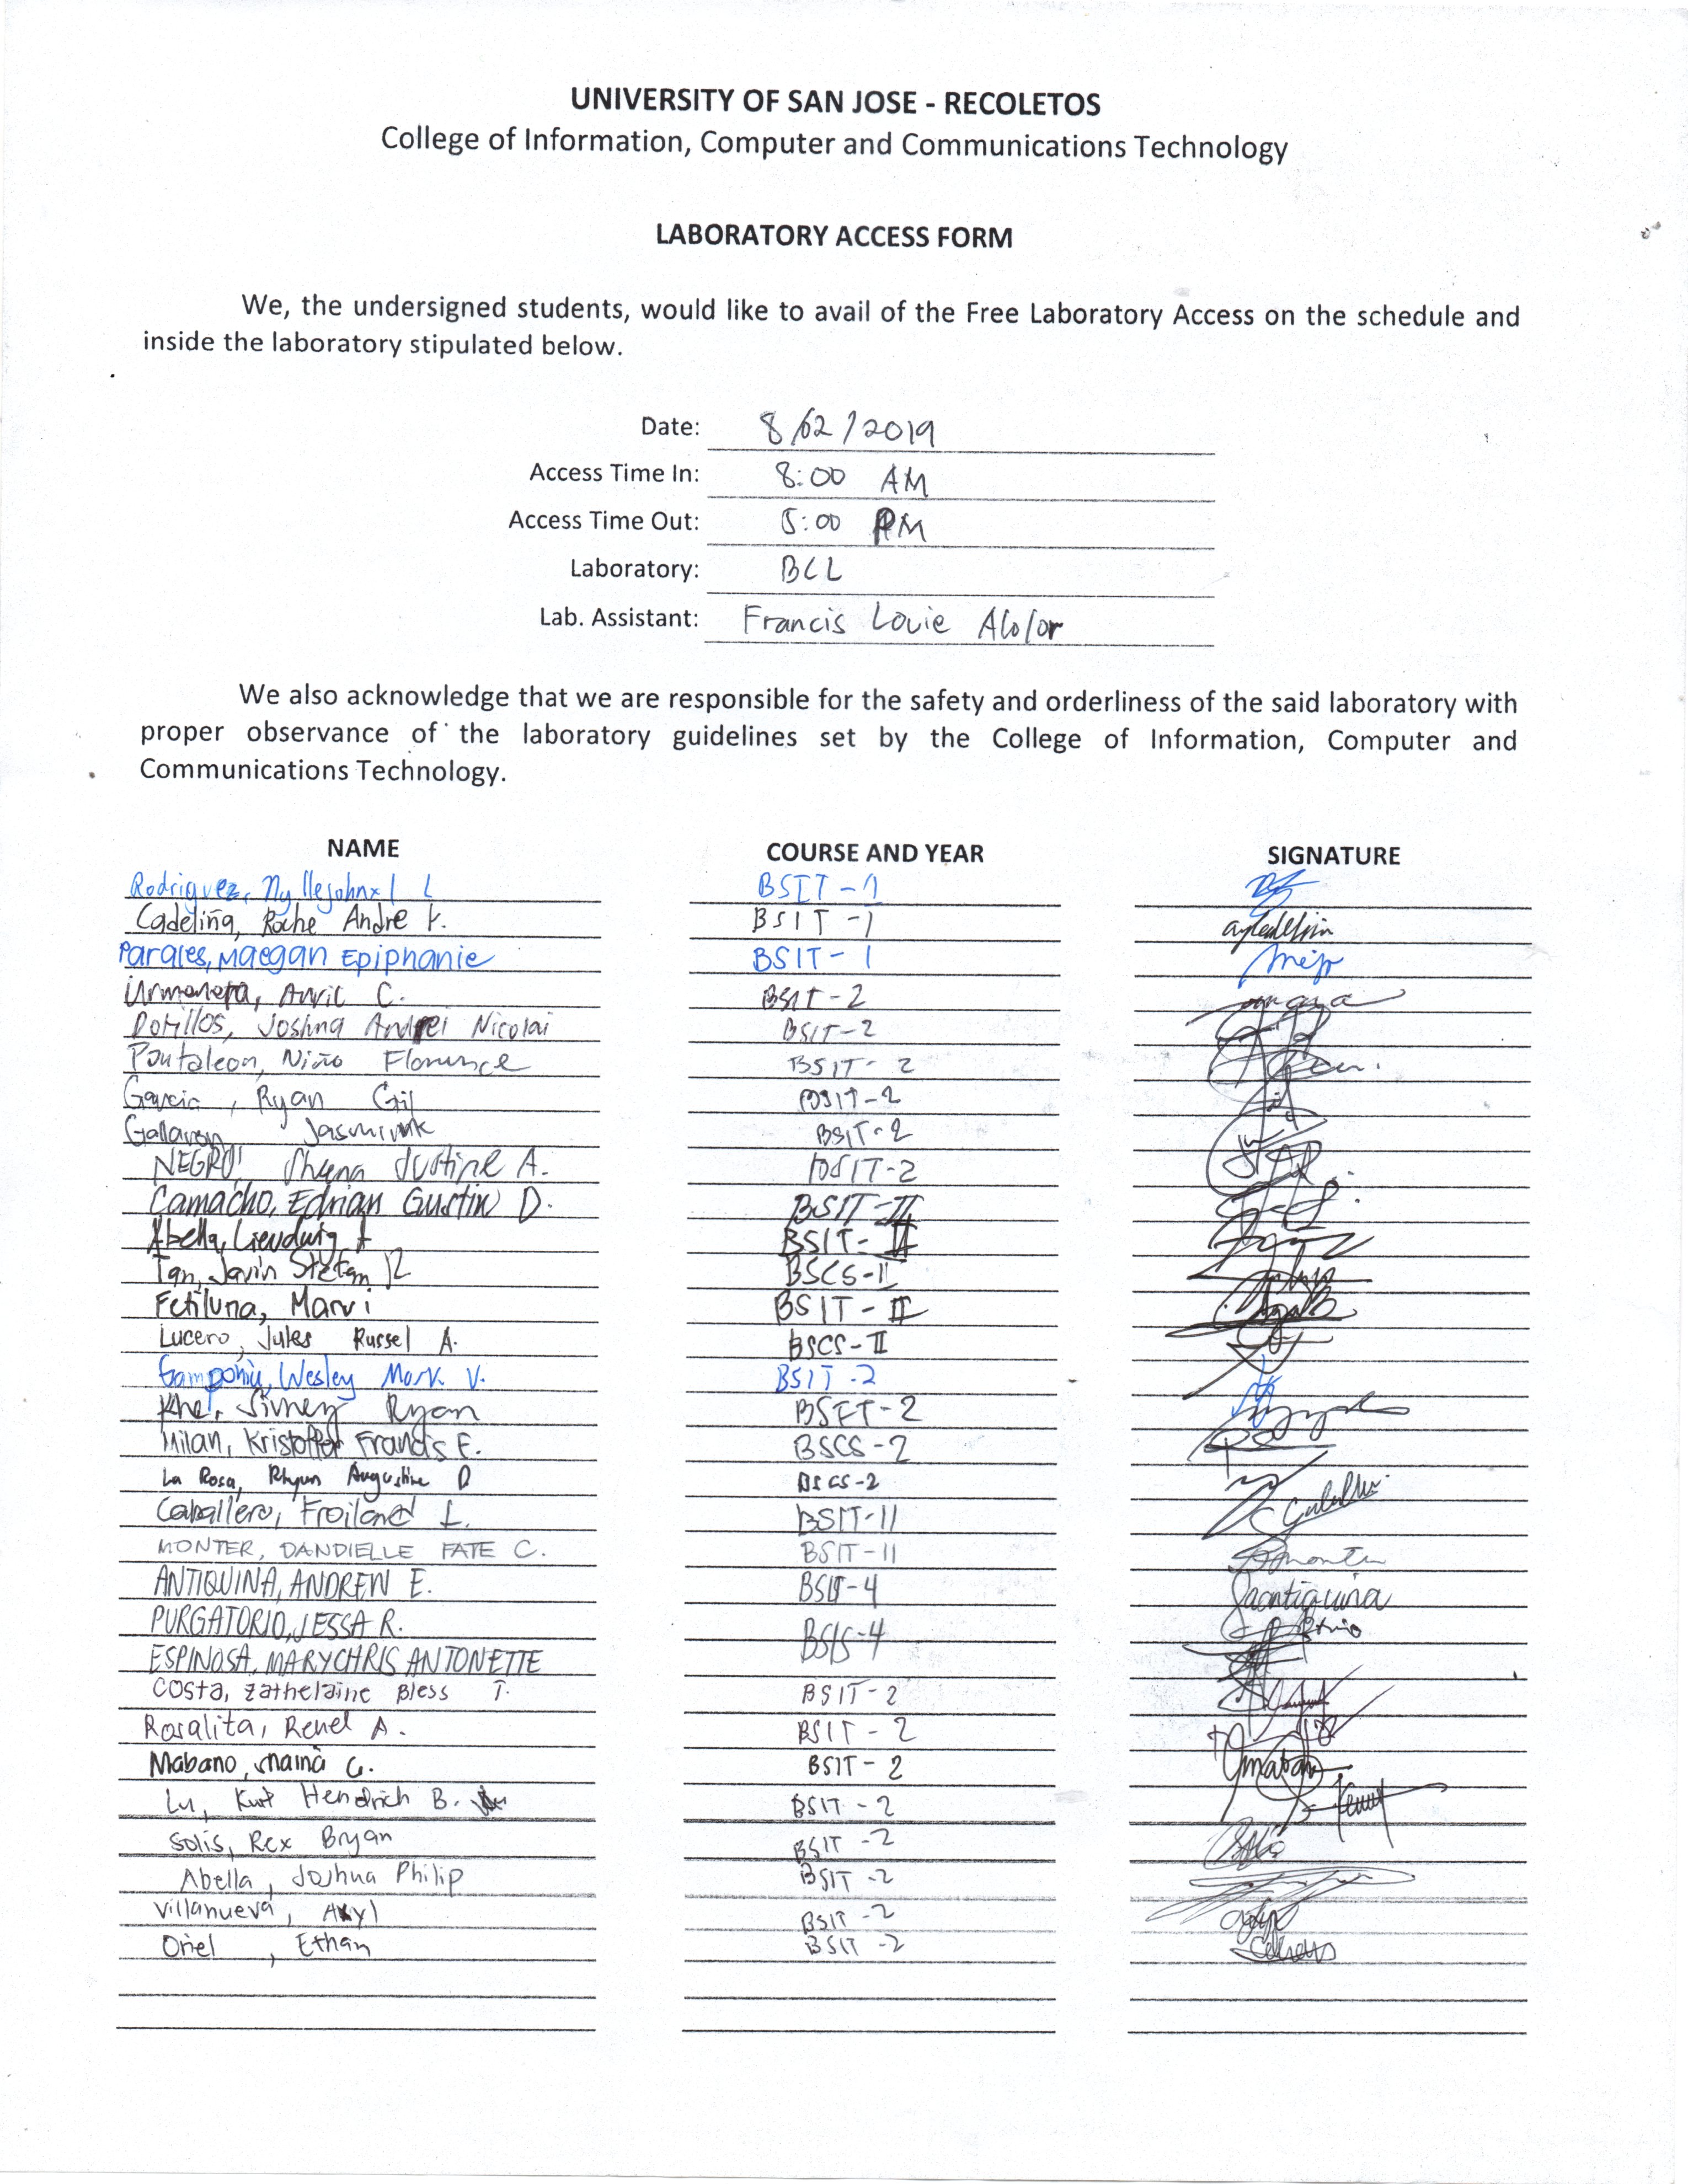 UNIVERSITY OF SAN JOSE - RECOLETOS
College of Information, Computer and Communications Technology
LABORATORY ACCESS FORM
We, the undersigned students, would like to avail of the Free Laboratory Access on the schedule and
inside the laboratory stipulated below.
Date: 8/02/2019
Access Time In: 8:00 AM
Access Time Out: 5:00 PM
Laboratory: BCL
Lab. Assistant: Francis Louie Alolor
We also acknowledge that we are responsible for the safety and orderliness of the said laboratory with
proper observance of the laboratory guidelines set by the College of Information, Computer and
Communications Technology.
NAME COURSE AND YEAR SIGNATURE
Rodriguez, BSIT-1
Cadeliña, Roche Andre BSIT-1
Parales, Maegan Epiphanie BSIT-1
C. BSIT-2
Joshua Andrei Nicolai BSIT-2
Pantaleon, Niño BSIT-2
Garcia, Ryan Gil BSIT-2
BSIT-2
NEGRO, Justine A. BSIT-2
Camacho, Edrian Gustin D. BSIT-II
Abella, BSIT-II
Tan, Javin Stefan BSCS-II
Fetiluna, Marvi BSIT-II
Lucero, Jules Russel A. BSCS-II
Wesley Mark V. BSIT-2
Ryan BSIT-2
Milan, Kristoffer Francis E. BSCS-2
La Rosa, Augustine D BSCS-2
Caballero, Froiland L. BSIT-II
MONTER, DANDIELLE FATE C. BSIT-II
ANTIQUINA, ANDREW E. BSIT-4 Jaantiquina
PURGATORIO, JESSA R.
BSIS-4
ESPINOSA, MARYCHRIS ANTONETTE
Costa, Zathelaine Bless T. BSIT-2
Rosalita, Renel A. BSIT-2
Mabano, G. BSIT-2
Lu, Kurt Hendrich B. BSIT-2
Solis, Rex Bryan BSIT-2
Abella, Joshua Philip BSIT-2
Villanueva, BSIT-2
Oriel, Ethan BSIT-2